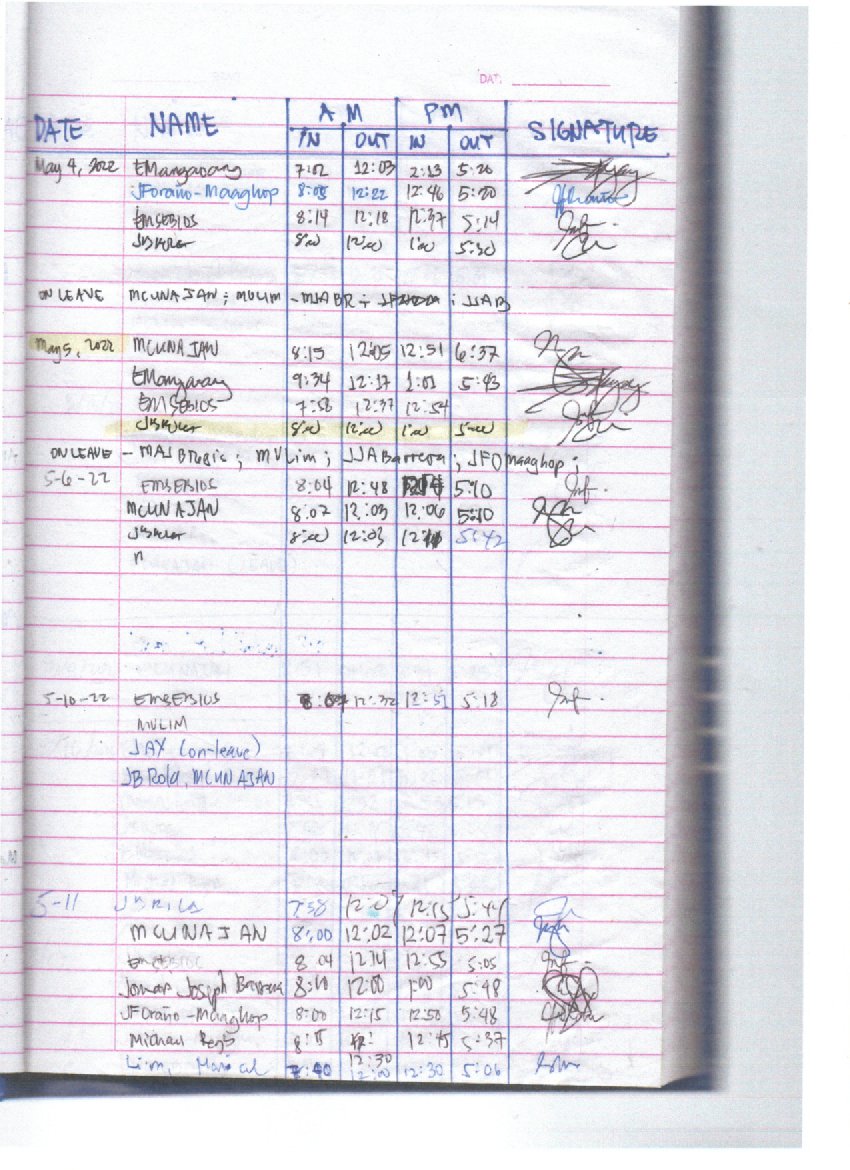 DATE
A.M PM
DATE NAME IN OUT IN OUT SIGNATURE
May 4, 2022 EMangarang 7:02 12:03 2:13 5:20
JForaño-Maaghop 8:05 12:22 12:46 5:20
EMSEBIOS 8:14 12:18 12:37 5:14
8:00 12:00 1:00 5:30
ON LEAVE MCUNAJAN; MVLIM - MJABR; ; JJAB
May 5, 2022 MCUNAJAN 8:15 12:05 12:51 6:37
EMangarang 9:34 12:17 1:01 5:43
EMSEBIOS 7:58 12:37 12:54
8:00 12:00 1:00 5:00
ON LEAVE - MAJ ; MVLim; JJABarrera; JFOMaaghop;
5-6-22 EMSEBIOS 8:04 12:48 5:10
MCUNAJAN 8:07 12:03 12:06 5:10
8:00 12:03 5:42
n
5-10-22 EMSEBIOS 12:32 12:51 5:18
MVLIM
JAY (on-leave)
JB Rola, MCUNAJAN
5-11 7:58 12:15 5:44
MCUNAJAN 8:00 12:02 12:07 5:27
8:04 12:14 12:55 5:05
Jomar Joseph Barrera 8:10 12:00 1:00 5:48
JForaño-Maaghop 8:00 12:15 12:50 5:48
Michael 8:15 12:45 5:37
12:30
Lim, Maricel 7:40 12:00 12:30 5:06